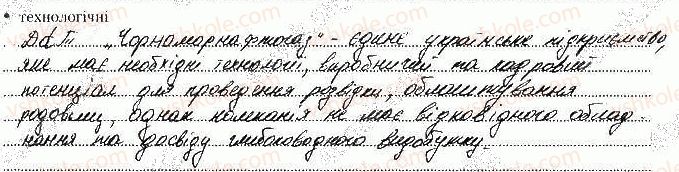 • технологічні
ДАТ „Чорноморнафтогаз" - єдине українське підприємство,
яке має необхідні технології, виробничий та кадровий
потенціал для проведення розвідки, облаштування
родовищ, однак компанія не має відповідного облад-
нання та досвіду глибоководного видобутку.